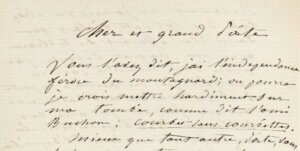 Cher et grand Poëte
Vous l'avez dit, j'ai l'indépendance
féroce du montagnard; on pourra
je crois mettre hardiment sur
ma tombe, comme dit l'ami
Buchon: courbé sans courbettes.
Mieux que tout autre, Poëte, vous